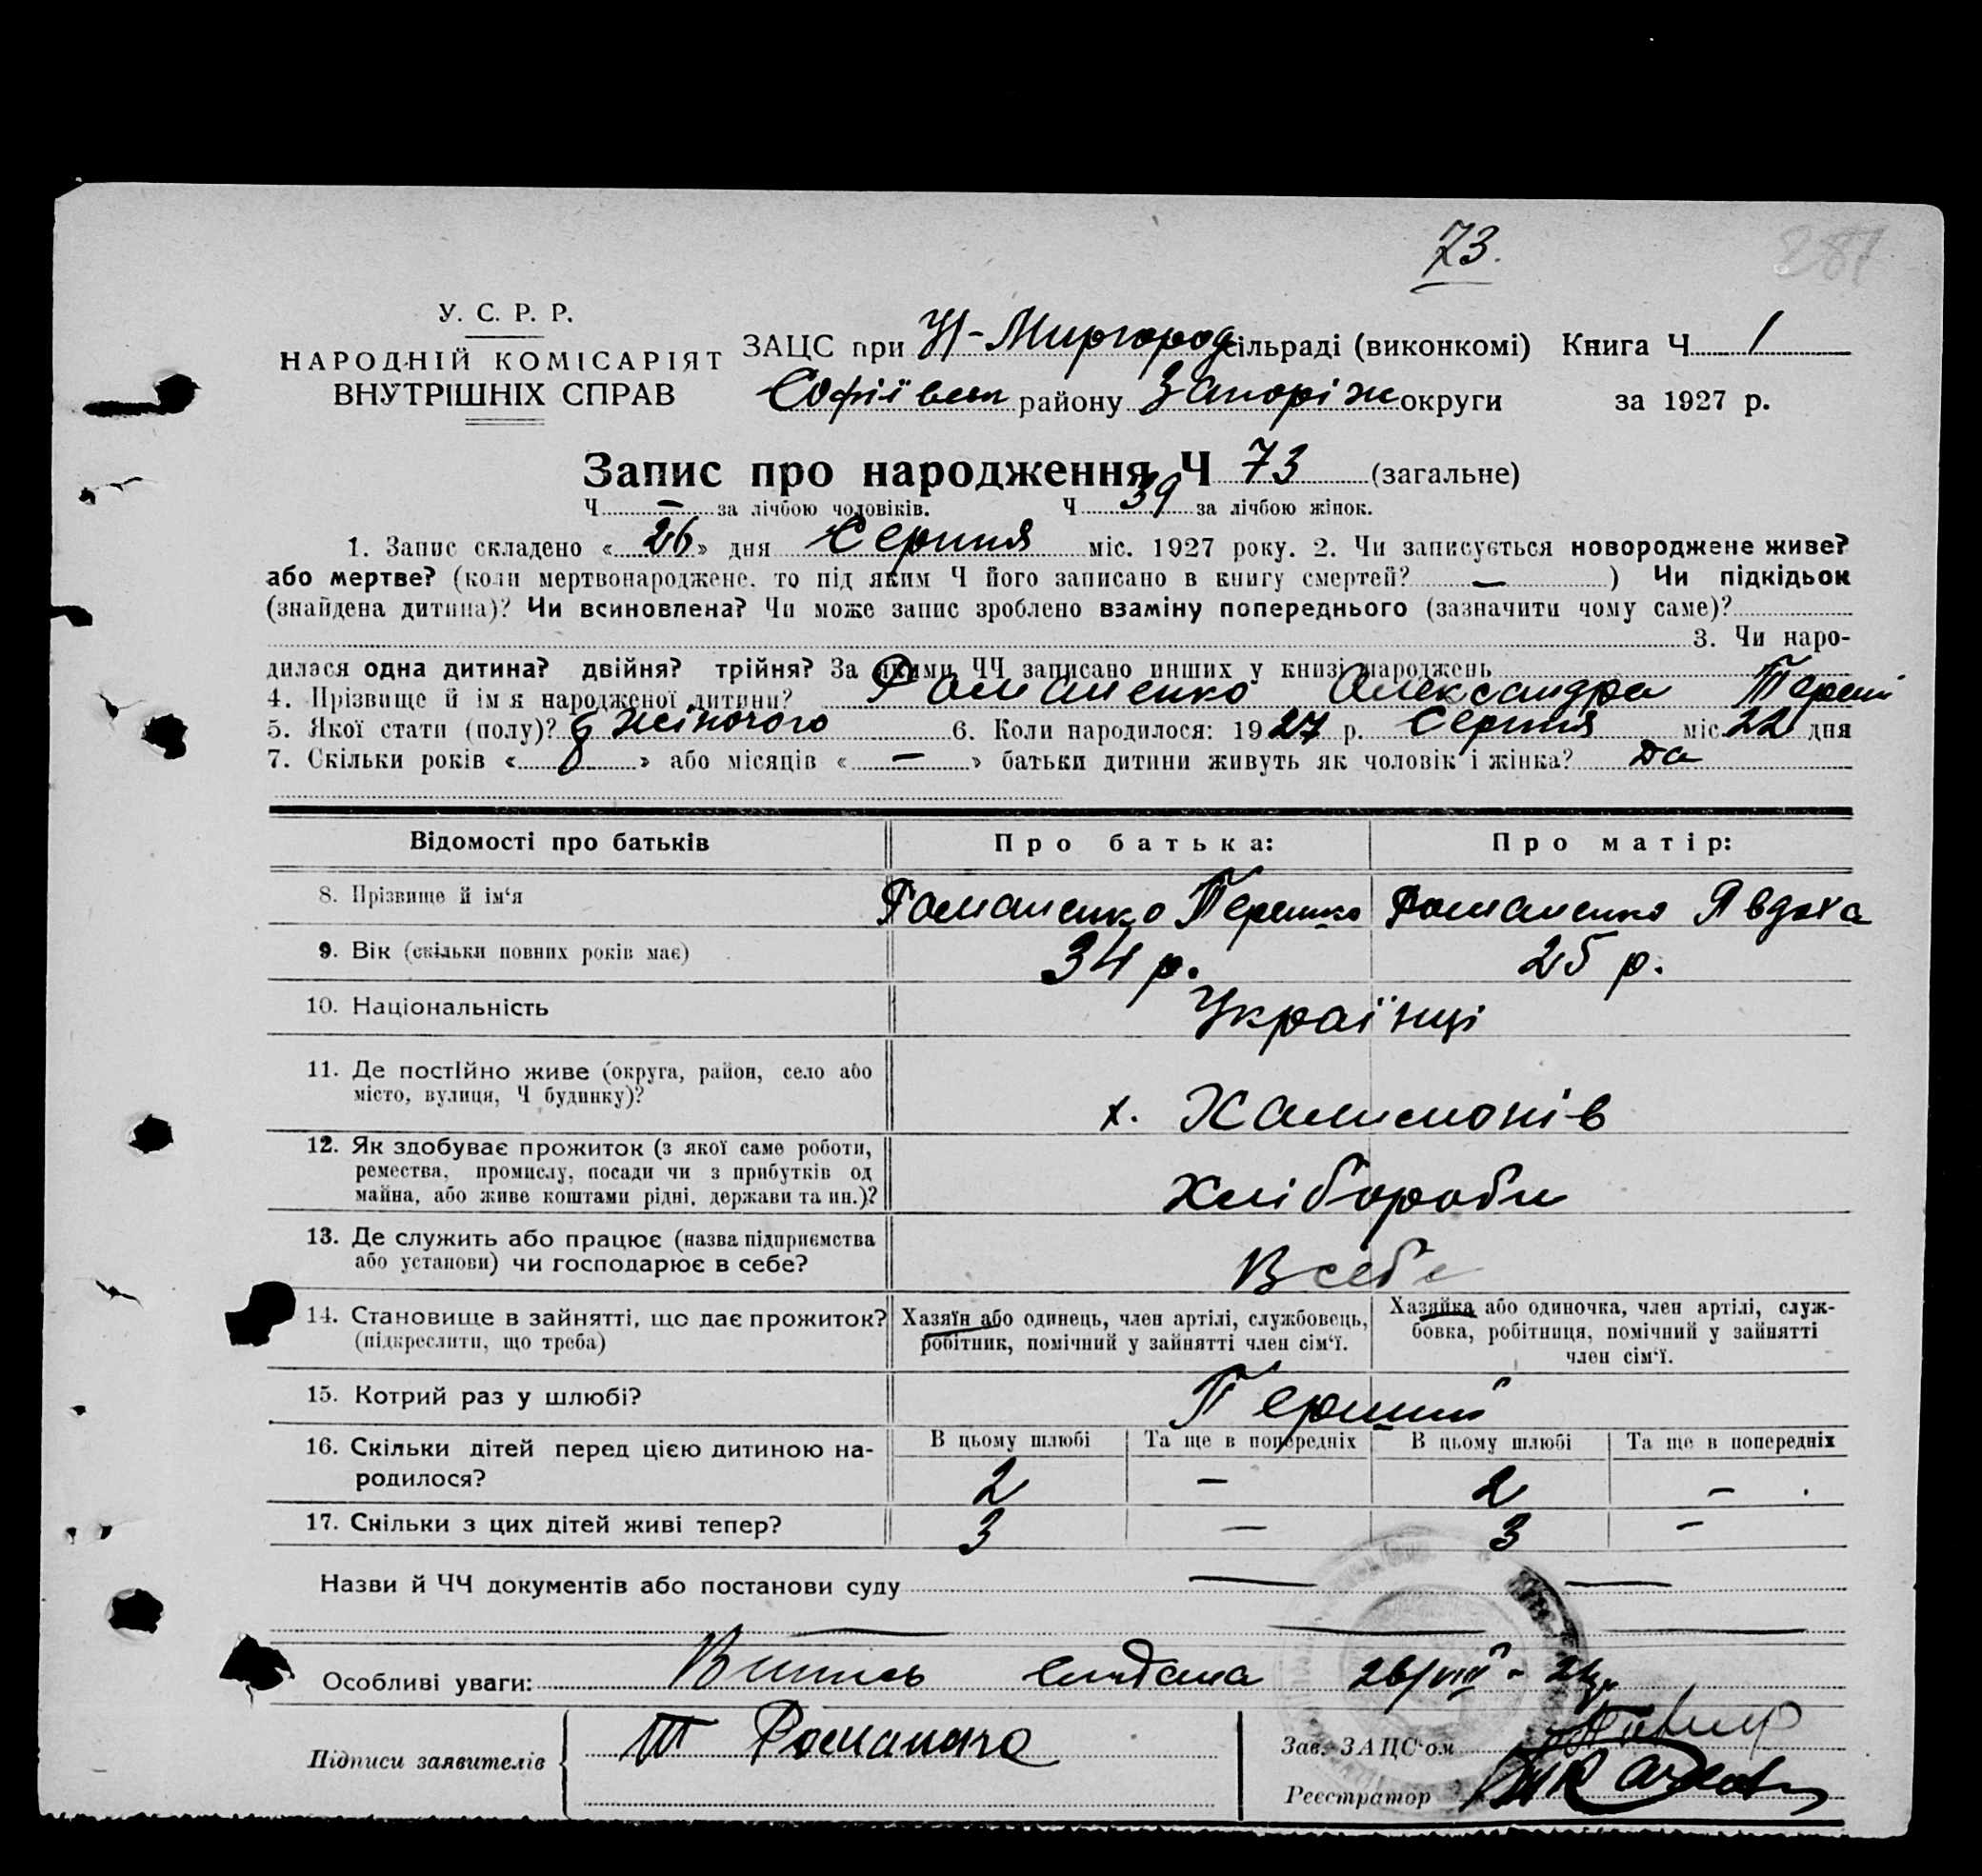 73.
287
У. С. Р. Р.
НАРОДНІЙ КОМІСАРІЯТ
ВНУТРІШНІХ СПРАВ
ЗАЦС при Н-Миргород сільраді (виконкомі) Книга Ч 1
Софіївськ району Запоріж округи за 1927 р.
Запис про народження Ч 73 (загальне)
Ч — за лічбою чоловіків. Ч 39 за лічбою жінок.
1. Запис складено « 26 » дня Серпня міс. 1927 року. 2. Чи записується новороджене живе?
або мертве? (коли мертвонароджене, то під яким Ч його записано в книгу смертей? — ) Чи підкідьок
(знайдена дитина)? Чи всиновлена? Чи може запис зроблено взаміну попереднього (зазначити чому саме)?
3. Чи наро-
дилася одна дитина? двійня? трійня? За якими ЧЧ записано инших у книзі народжень
4. Прізвище й ім'я народженої дитини? Романенко Олександра
5. Якої стати (полу)? Жіночого 6. Коли народилося: 1927 р. Серпня міс. 22 дня
7. Скільки років « 8 » або місяців « — » батьки дитини живуть як чоловік і жінка? Да
Відомості про батьків Про батька: Про матір:
8. Прізвище й ім'я Романенко Романенко Явдоха
9. Вік (скільки повних років має) 34 р. 25 р.
10. Національність Українці
11. Де постійно живе (округа, район, село або
місто, вулиця, Ч будинку)? х.
12. Як здобуває прожиток (з якої саме роботи,
ремества, промислу, посади чи з прибутків од
майна, або живе коштами рідні, держави та ин.)? Хлібороби
13. Де служить або працює (назва підприємства
або установи) чи господарює в себе? В себе
14. Становище в зайнятті, що дає прожиток?
(підкреслити, що треба)
Хазяїн або одинець, член артілі, службовець,
робітник, помічний у зайнятті член сім'ї.
Хазяйка або одиночка, член артілі, служ-
бовка, робітниця, помічний у зайнятті
член сім'ї.
15. Котрий раз у шлюбі? Перший
16. Скільки дітей перед цією дитиною на-
родилося?
В цьому шлюбі Та ще в попередніх В цьому шлюбі Та ще в попередніх
2 — 2 —
17. Скільки з цих дітей живі тепер? 3 — 3 —
Назви й ЧЧ документів або постанови суду — —
Особливі уваги: Випись 26/VIII - 27р.
Підписи заявителів
Зав. ЗАЦС'ом
Реєстратор